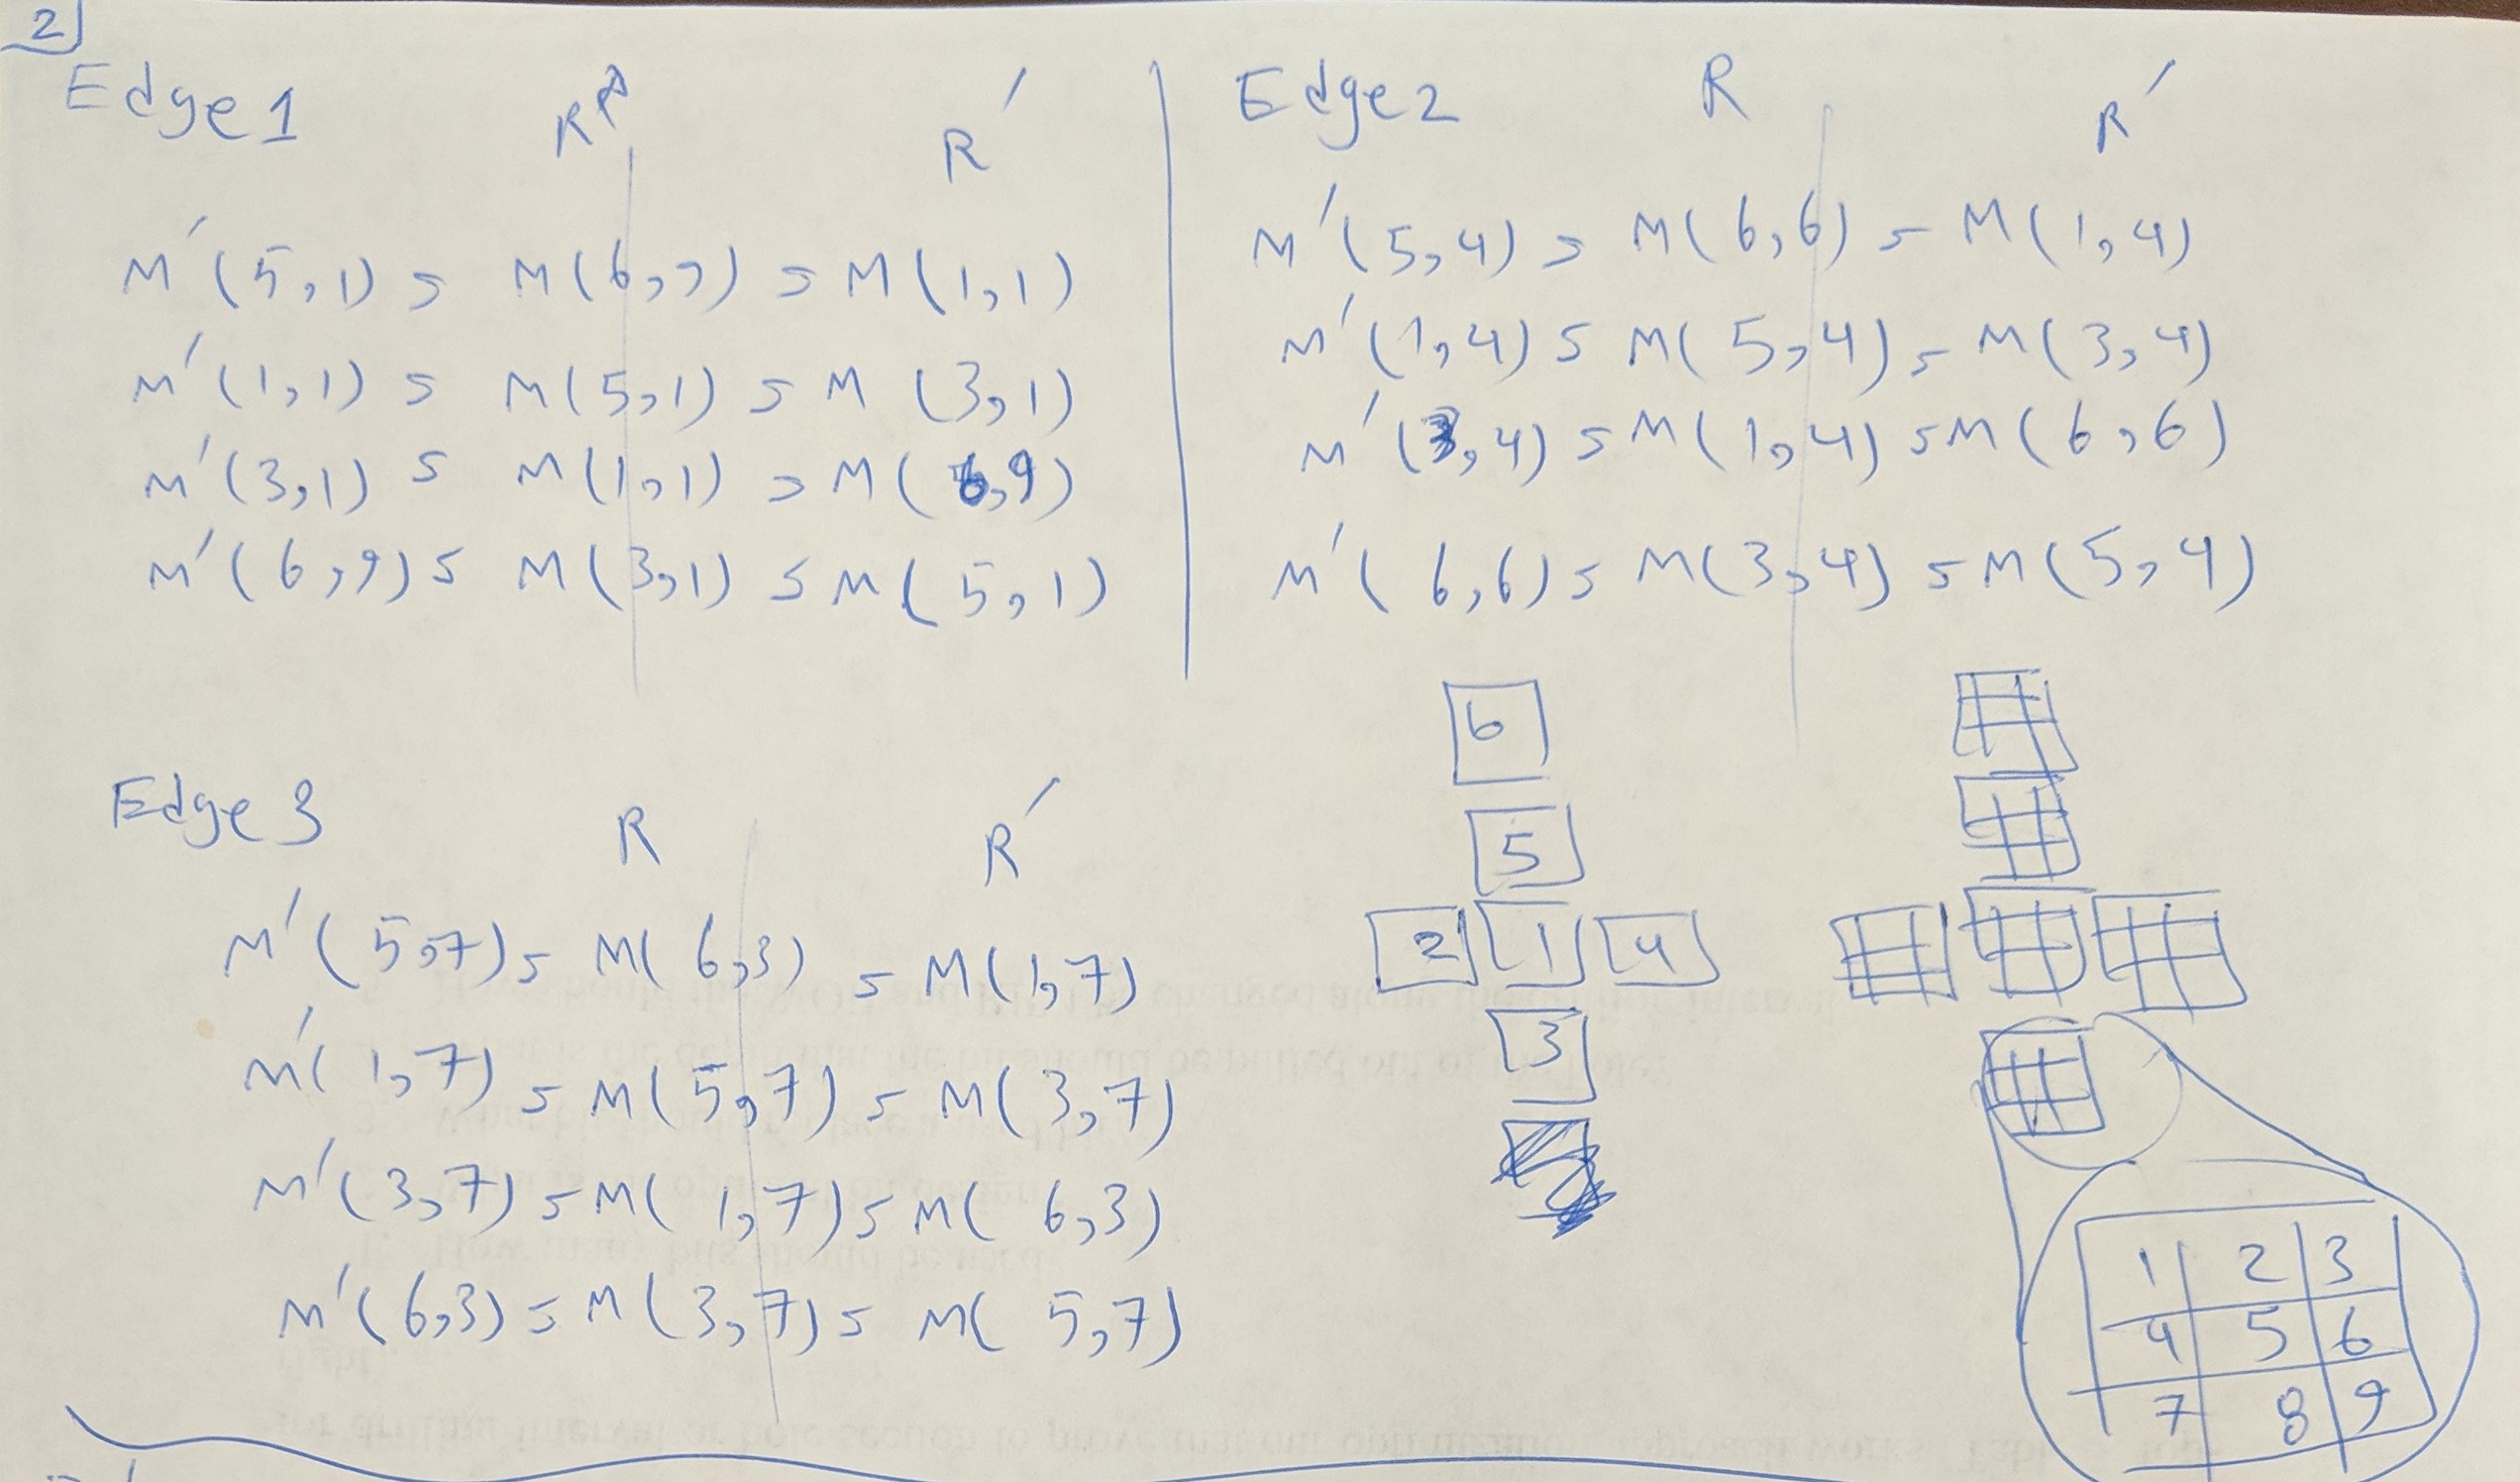 2
Edge 1 R R′
M′(5,1) = M(6,9) = M(1,1)
M′(1,1) = M(5,1) = M(3,1)
M′(3,1) = M(1,1) = M(6,9)
M′(6,9) = M(3,1) = M(5,1)
Edge 2 R R′
M′(5,4) = M(6,6) = M(1,4)
M′(1,4) = M(5,4) = M(3,4)
M′(3,4) = M(1,4) = M(6,6)
M′(6,6) = M(3,4) = M(5,4)
Edge 3 R R′
M′(5,7) = M(6,3) = M(1,7)
M′(1,7) = M(5,7) = M(3,7)
M′(3,7) = M(1,7) = M(6,3)
M′(6,3) = M(3,7) = M(5,7)
6
5
2 1 4
3
1 2 3
4 5 6
7 8 9